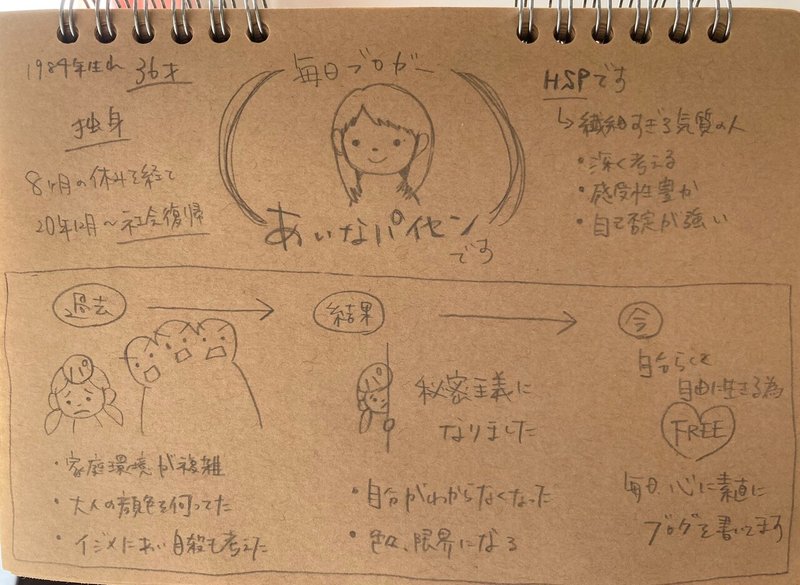 1984年生れ 36才
独身
8ヶ月の休みを経て
20年12月〜社会復帰
毎日ブロガー
あいなパイセン
です
HSPです
↳繊細すぎる気質の人
・深く考える
・感受性豊か
・自己否定が強い
過去
・家庭環境が複雑
・大人の顔色を伺ってた
・イジメにあい自殺も考えた
結果
秘密主義に
なりました
・自分がわからなくなった
・色々、限界になる
今
自分らしく
自由に生きる為
FREE
毎日、心に素直に
ブログを書いてます